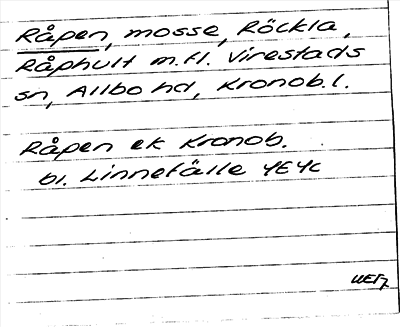 Råpen, mosse, Röckla,
Råphult m.fl. Virestads
sn, Allbo hd, Kronob.l.
Råpen ek Kronob.
bl. Linnefälle 4E4c